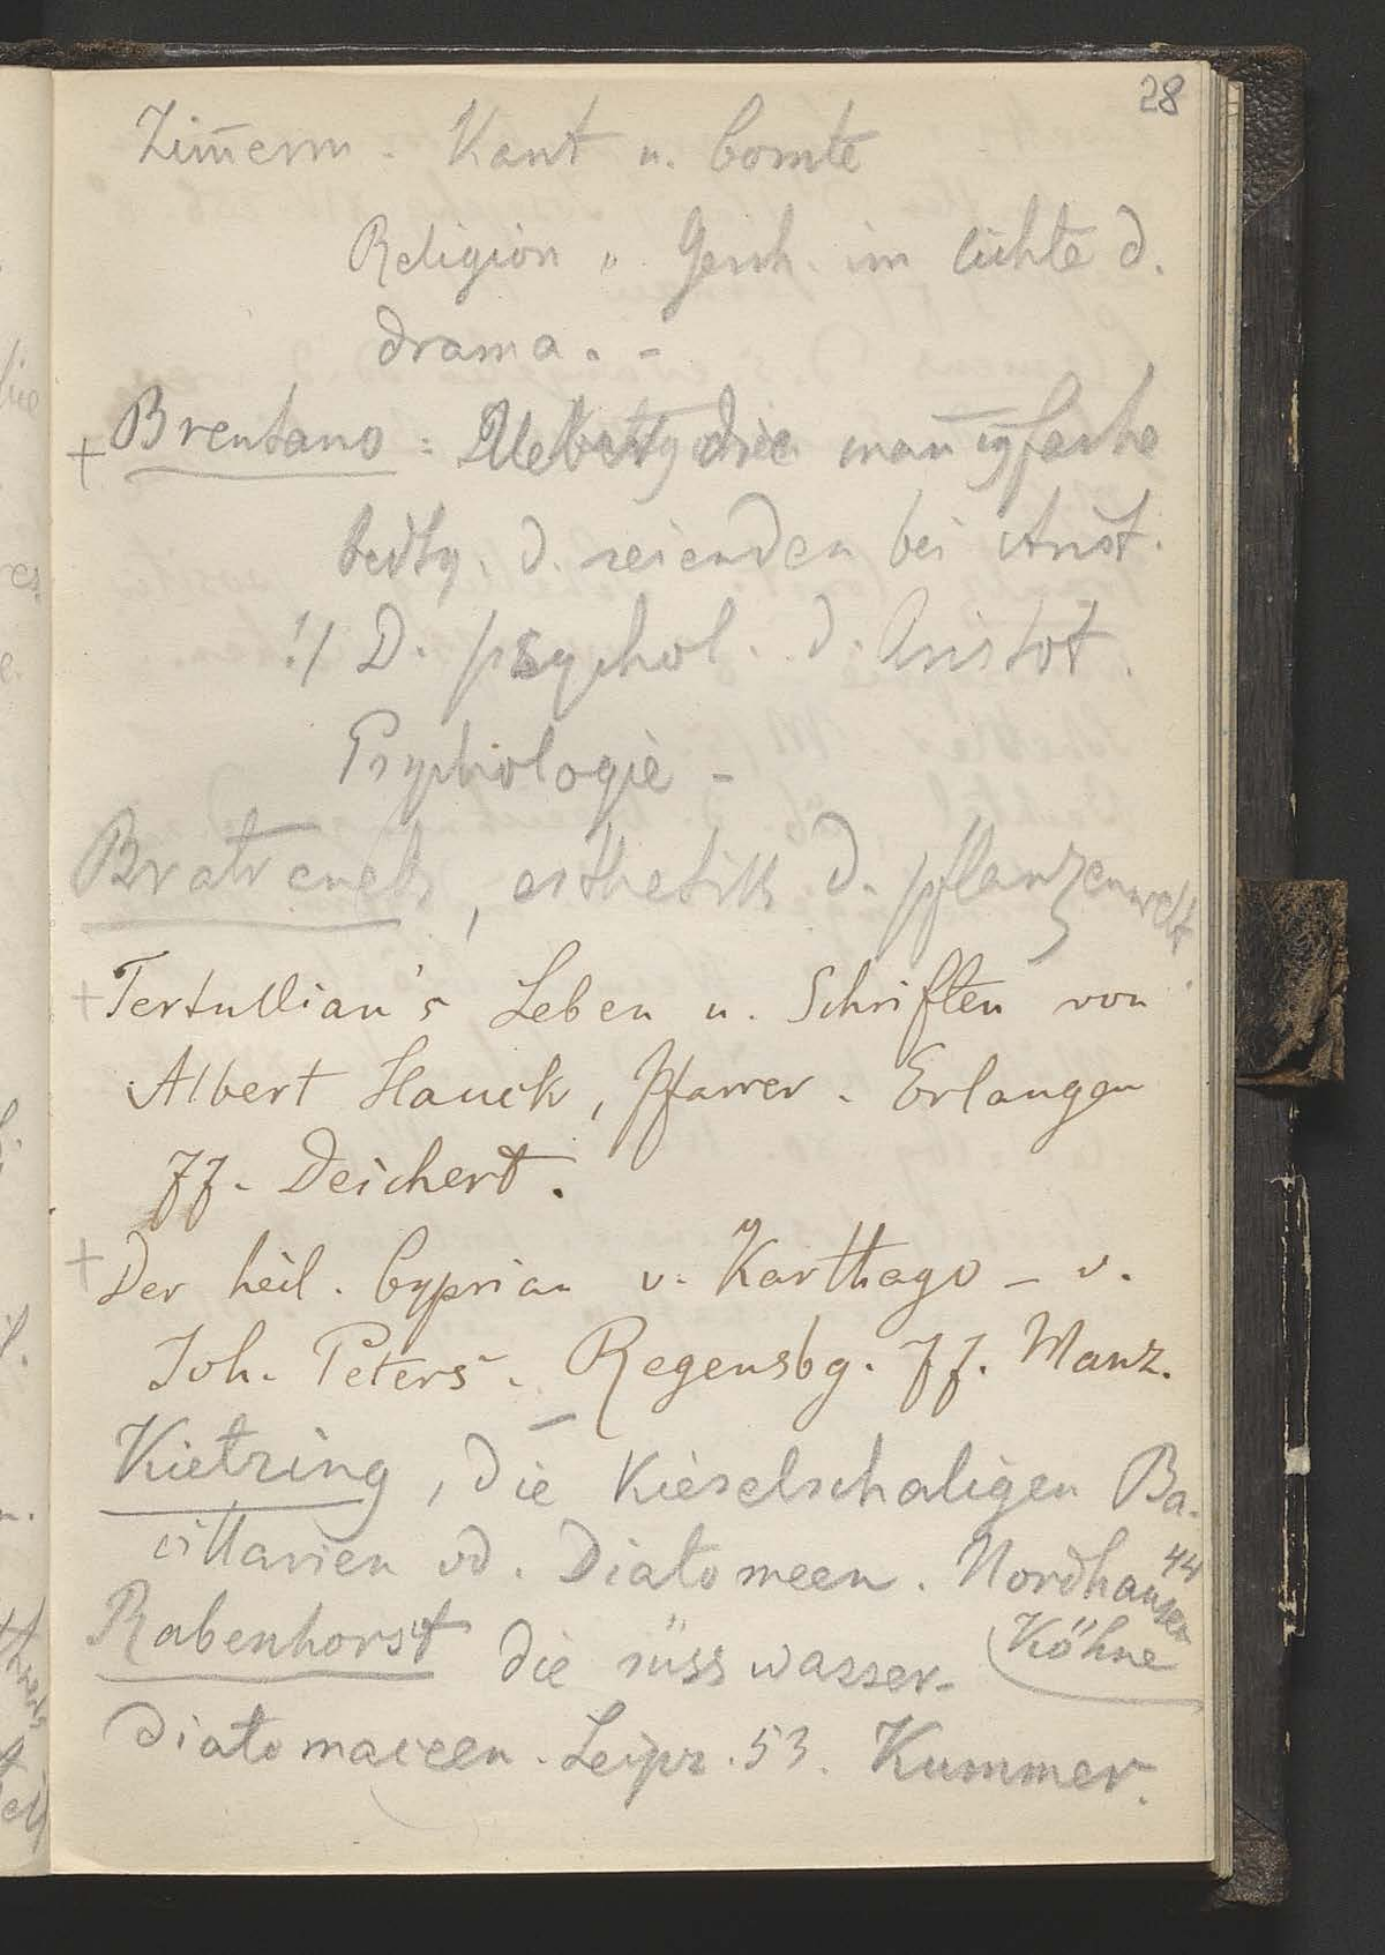 28
Zim̅erm. Kant u. Comte
Religion u. Gesch. im lichte d.
drama. -
+ Brentano: die man̅igfache
bedtg. d. seienden bei Arist.
!/ D. psychol. d. Aristot.
Psychologie -
Bratranek, esthetik d. pflanzenwelt
+ Tertullian's Leben u. Schriften von
Albert Hauck, Pfarrer. Erlangen
77. Deichert.
+ Der heil. Cyprian v. Karthago - v.
Joh. Peters. Regensbg. 77. Manz.
Kietzing, die Kieselschaligen Ba-
cillarien od. Diatomeen. Nordhausen
44
Köhne
Rabenhorst die süsswasser-
diatomaceen. Leipz. 53. Kummer.